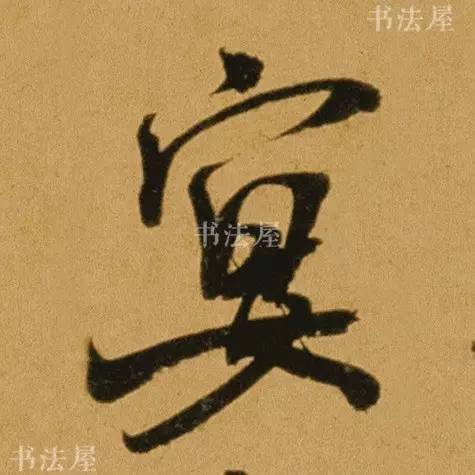 书法屋
宴
书法屋
书法屋